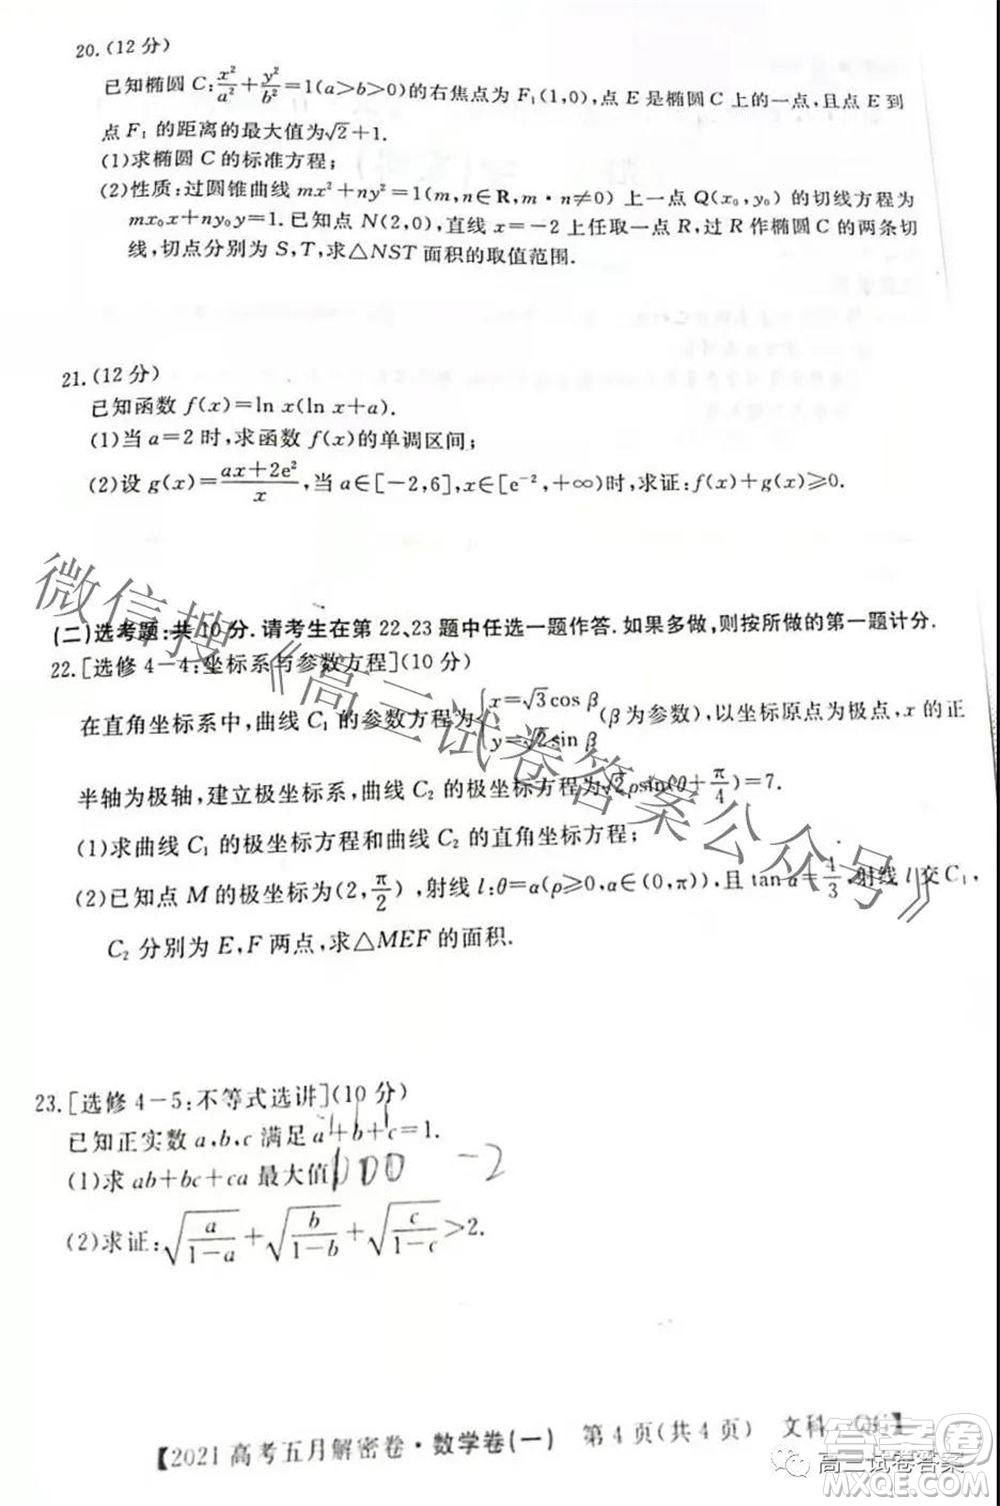 20.(12分)
已知椭圆 C:x²/a²+y²/b²=1(a>b>0)的右焦点为 F₁(1,0),点 E 是椭圆 C 上的一点,且点 E 到
点 F₁ 的距离的最大值为√2+1.
(1)求椭圆 C 的标准方程;
(2)性质:过圆锥曲线 mx²+ny²=1(m,n∈R,m·n≠0)上一点 Q(x₀,y₀)的切线方程为
mx₀x+ny₀y=1.已知点 N(2,0),直线 x=-2 上任取一点 R,过 R 作椭圆 C 的两条切
线,切点分别为 S,T,求△NST 面积的取值范围.
21.(12分)
已知函数 f(x)=ln x(ln x+a).
(1)当 a=2 时,求函数 f(x)的单调区间;
(2)设 g(x)=(ax+2e²)/x,当 a∈[-2,6],x∈[e⁻²,+∞)时,求证:f(x)+g(x)≥0.
(二)选考题:共10分.请考生在第22、23题中任选一题作答.如果多做,则按所做的第一题计分.
22.[选修4-4:坐标系与参数方程](10分)
在直角坐标系中,曲线 C₁ 的参数方程为{x=√3cos β y=√2sin β(β为参数),以坐标原点为极点,x 的正
半轴为极轴,建立极坐标系,曲线 C₂ 的极坐标方程为√2ρsin(θ+π/4)=7.
(1)求曲线 C₁ 的极坐标方程和曲线 C₂ 的直角坐标方程;
(2)已知点 M 的极坐标为(2,π/2),射线 l:θ=α(ρ≥0,α∈(0,π)),且 tan α=4/3,射线 l 交 C₁,
C₂ 分别为 E,F 两点,求△MEF 的面积.
23.[选修4-5:不等式选讲](10分)
已知正实数 a,b,c 满足 a+b+c=1.
(1)求 ab+bc+ca 最大值
100 -2
(2)求证:√(a/(1-a))+√(b/(1-b))+√(c/(1-c))>2.
【2021高考五月解密卷·数学卷(一) 第4页(共4页) 文科 QG】
微信搜《高三试卷答案公众号》
高三试卷答案
答案圈
MXQE.COM